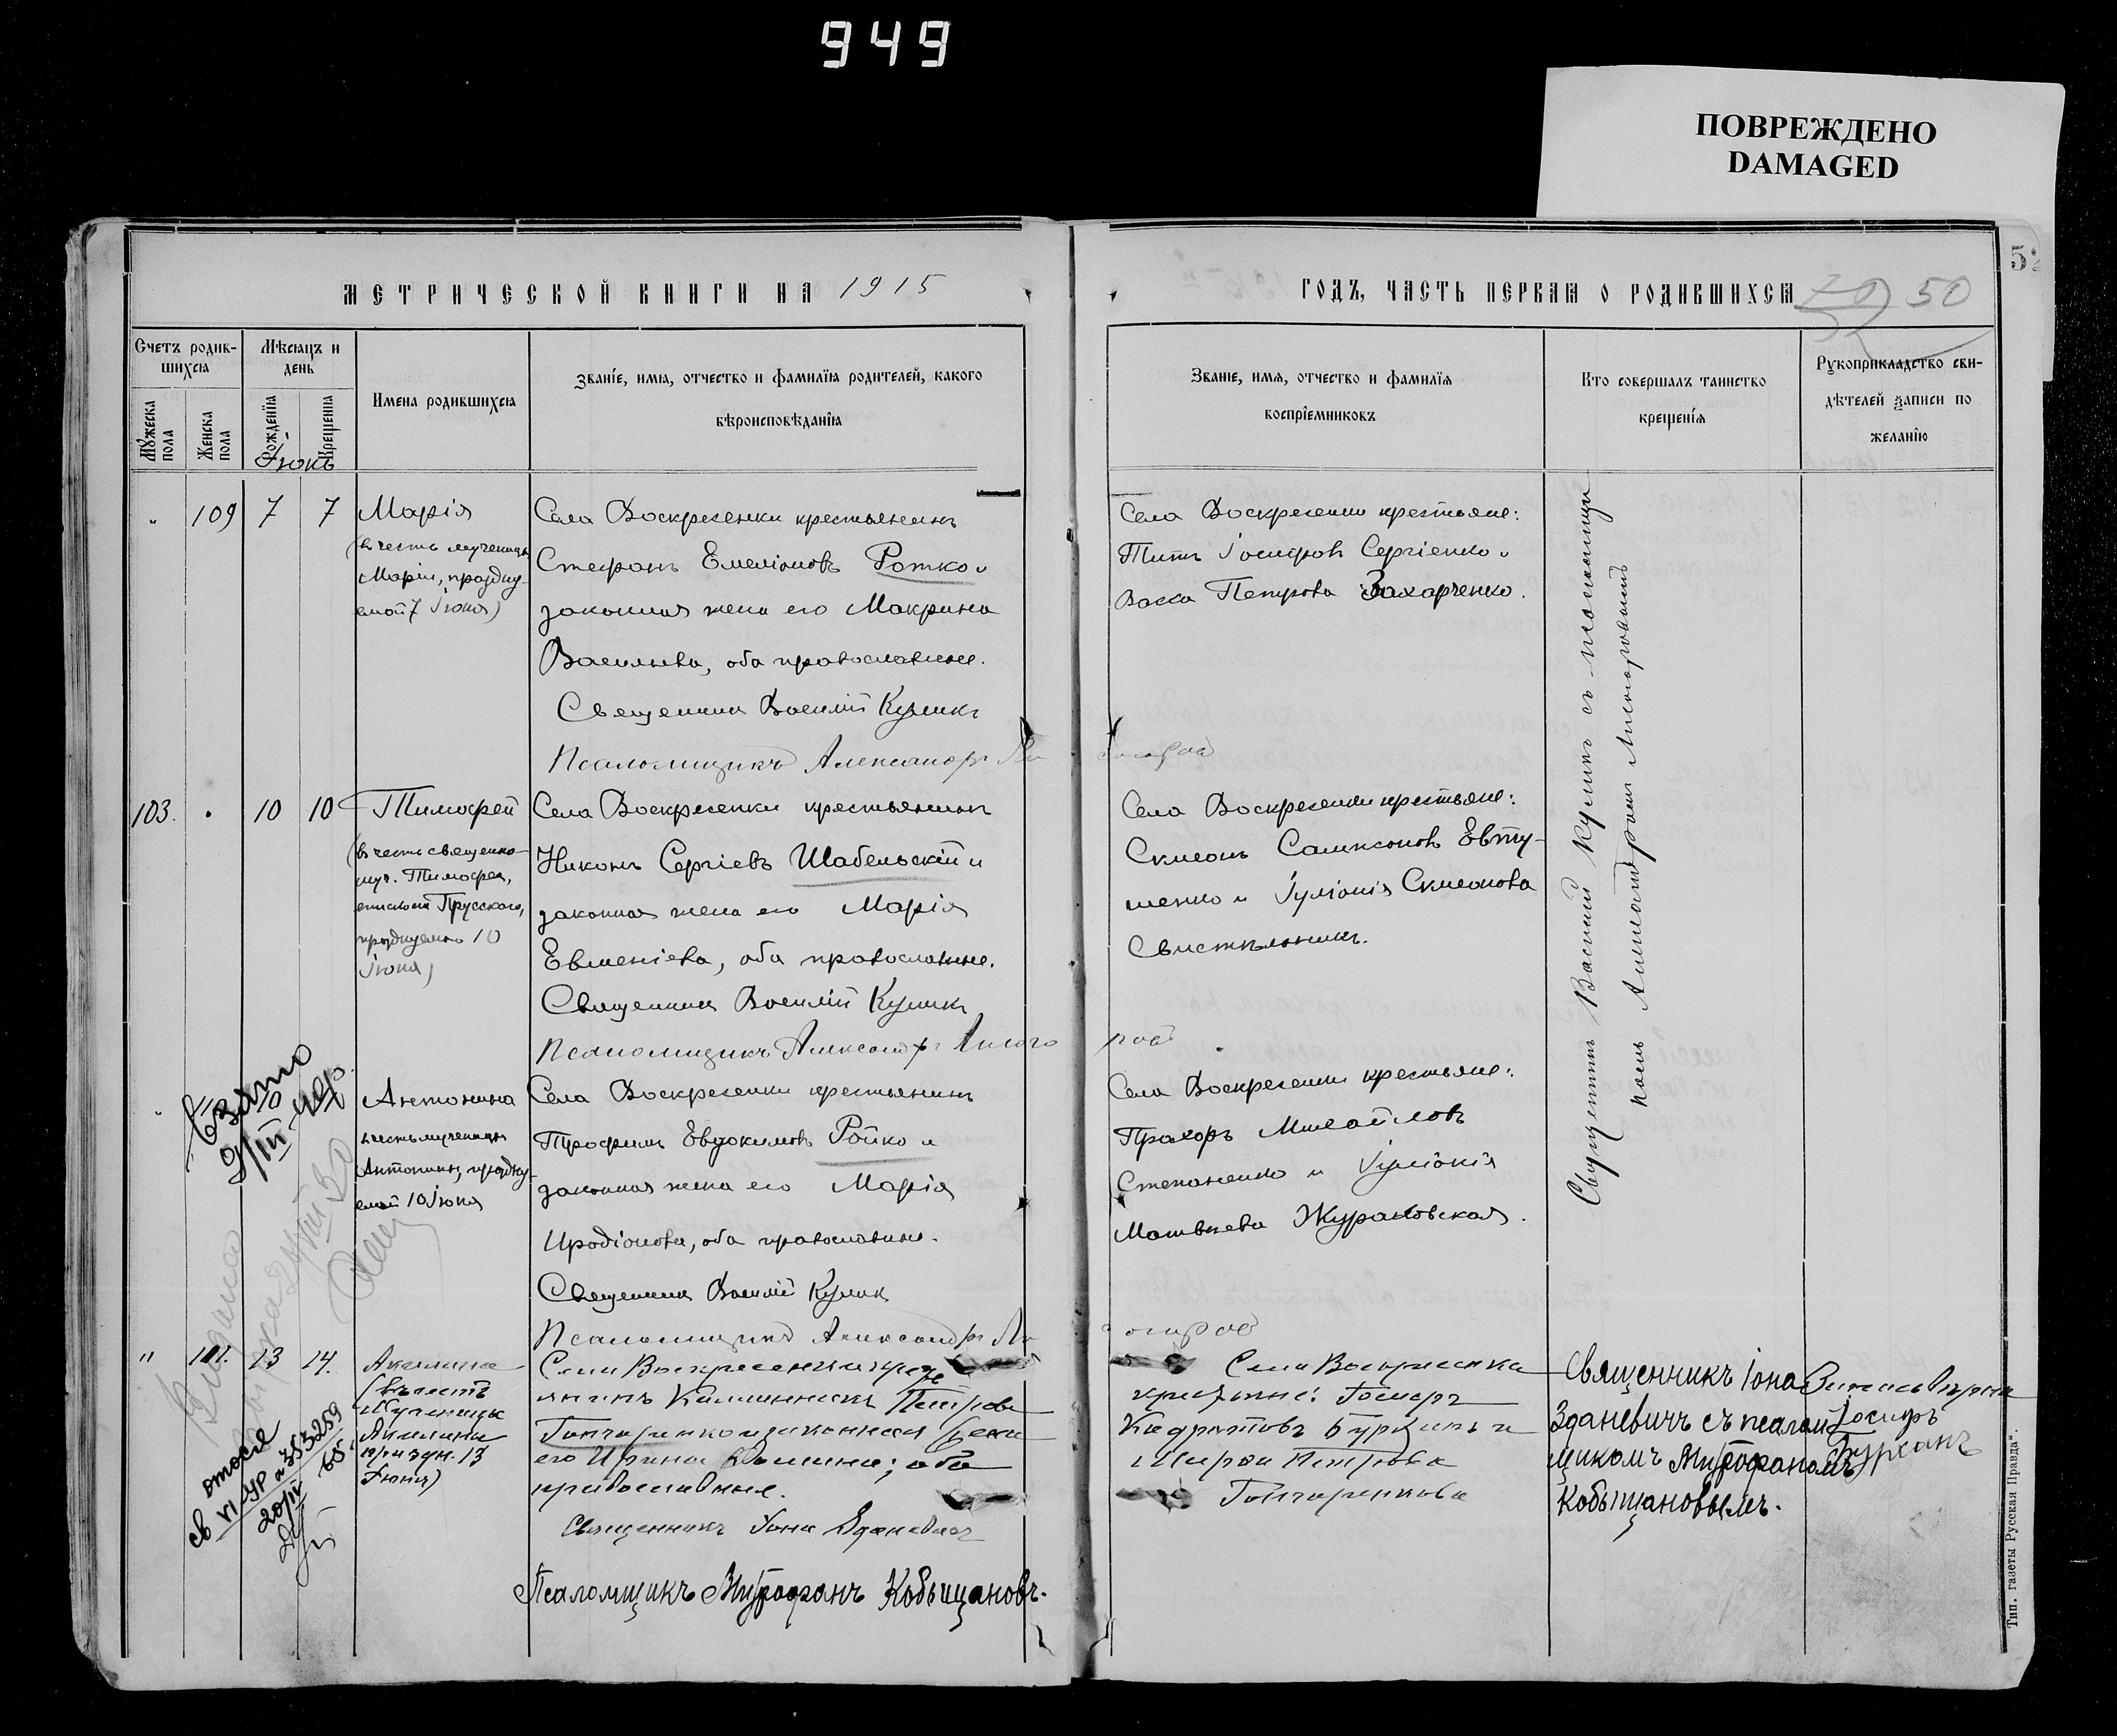 949
ПОВРЕЖДЕНО
DAMAGED
МЕТРИЧЕСКОЙ КНИГИ НА 1915
Счетъ родив-
шихся
Мѣсяцъ и
день
Имена родившихся
Званіе, имя, отчество и фамилія родителей, какого
вѣроисповѣданія
Мужеска
пола
Женска
пола
Рожденія
Крещенія
Іюнь
109 7 7
Марія
(въ честь мученицы
Маріи, праздну-
емой 7 Іюня)
Села Воскресенки крестьянинъ
Стефанъ Емеліановъ Ротко и
законная жена его Макрина
Васильева, оба православные.
Священникъ Василій Куликъ
Псаломщикъ Александръ
103. 10 10
Тимофей
(въ честь священно-
муч. Тимофея,
епископа Прусскаго,
празднуемаго 10
Іюня)
Села Воскресенки крестьянинъ
Никонъ Сергіевъ Шабельскій и
законная жена его Марія
Евменіева, оба православные.
Священникъ Василій Куликъ
Псаломщикъ Александръ
Взято
Антонина
въ честь мученицы
Антонины, праздну-
емой 10 Іюня
Села Воскресенки крестьянинъ
Трофимъ Евдокимовъ Ройко и
законная жена его Марія
Иродіонова, оба православные.
Священникъ Василій Куликъ
Псаломщикъ Александръ
" 111. 13 14.
Акилина
(въ честь
Мученицы
Акилины
праздн. 13
Іюня)
Села Воскресенки
Петровъ
Гончаренко и законная жена
его Ирина; оба
православные.
Священникъ Іона Зданевичъ
Псаломщикъ Митрофанъ Кобыщановъ.
св
VI-УР № 353259
20/IV 55
ГОДЪ, ЧАСТЬ ПЕРВАЯ О РОДИВШИХСЯ
50
52
Званіе, имя, отчество и фамилія
воспріемниковъ
Кто совершалъ таинство
крещенія
Рукоприкладство сви-
дѣтелей записи по
желанію
Села Воскресенки крестьяне:
Титъ Іосифовъ Сергіенко и
Васса Петрова Захарченко.
Села Воскресенки крестьяне:
Симеонъ Сампсоновъ Евту-
шенко и Іуліанія Симеонова
Села Воскресенки крестьяне:
Прохоръ Михайловъ
Степаненко и Іуліанія
Матвѣева Жураковская.
Села Воскресенка
крестьяне: Іосифъ
Кодратовъ Бурханъ и
Петрова
Гончаренкова
Священникъ Василій Куликъ съ псаломщи-
комъ Александромъ
Священникъ Іона
Зданевичъ съ псалом-
щикомъ Митрофаномъ
Кобыщановымъ.
Іосифъ
Бурханъ
Тип. газеты Русская Правда".